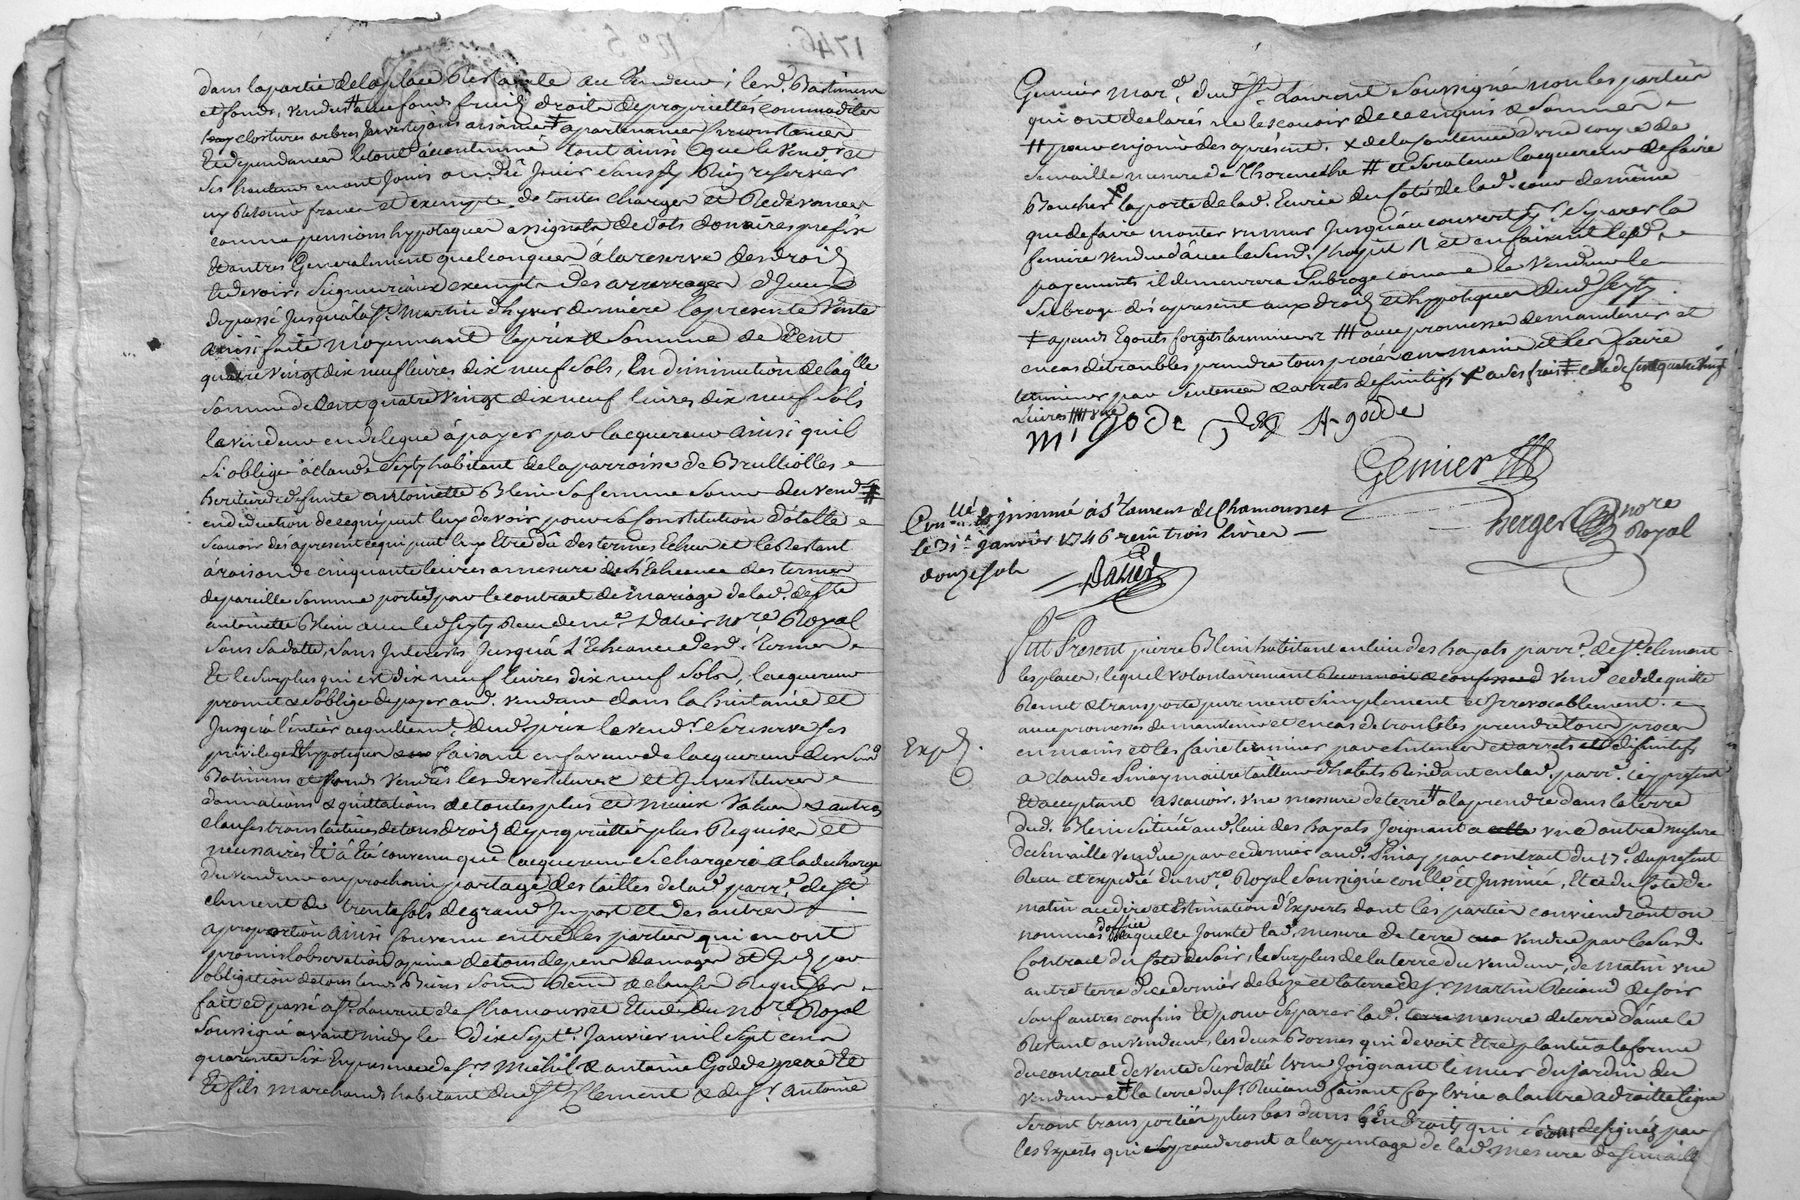 dans la partie de la place Restante au Vendeur; lesd. Bastimens
et fonds, vendus # avec fonds fruids droits de proprietes commodites
clostures arbres aisances # apartenances circonstances
Et dependances le tout a coutumé tout ainsi que le Vend.r et
ses hauteurs en ont Jouis ou dû Jouir sans sy Rien reserver
ny Retenir franc et exempts de toutes charges et Redevances
comme pensions hypoteques assignats de dots douaires prefix
Et autres Generalement quelconques à la reserve des droids
et devoirs seigneuriaux exempts des arrerages d'Iceux
du passé Jusqu'à la St. Martin d'hyver derniere la presente Vente
ainsi faite moyennant le prix & Somme de Cent
quatre Vingt dix neuf livres dix neuf sols, En diminution de laq.lle
Somme de Cent quatre Vingt dix neuf livres dix neuf sols
le vendeur en delegue à payer par l'acquereur ainsi qu'il
si oblige à claude habitant de la parroisse de Brullioles
heritier de deffunte antoinette Blein sa femme soeur du vend.r #
en deduction de ce qui peut luy devoir pour la Constitution dotalle
Scavoir dès apresent ce qui peut luy Etre dû des termes Echus et le Restant
à raison de cinquante livres a mesure de l'Echeance des termes
de pareille somme portés par le contract de mariage de lad. deffte
antoinette Blein avec led. Recu de me. Dalier nore. Royal
sans sa datte, sans Interests Jusqu'à L'Echeance desd. Termes
Et le surplus qui est dix neuf livres dix neuf sols, l'acquereur
promet & s'oblige de payer aud. vendeur dans la huitaine et
Jusqu'à l'entier acquitement dud. prix le vend.r se reserve ses
privileges & hypoteques faisant en faveur de l'acquereur des susd.
Batimens et fonds vendus les devestitures et Investitures
donnations & quittations de toutes plus et mieux Values & autres
clauses translatives de tous droids de proprieté plus Requises et
necessaires Et à Eté convenu que l'acquereur se chargera a la decharge
du vendeur au prochain partage des tailles de lad. parr.e de St.
clement de trente sols de grand Impost et des autres
a proportion ainsi convenu entre les parties qui en ont
promis l'observation a peine de tous depens domages et Int. par
obligation de tous leurs Biens Soum. Renon. & clauses Requises
fait et passé a St. Laurent de Chamousset Etude du nore. Royal
Soussigné avant midy le Dix Sept.e Janvier mil Sept cens
quarante six En presence de Srs. Michel & antoine Godde pere Et
Et fils marchands habitant dud. St. Clement & de Sr. antoine
Genier mar.d dud. St. Laurent Soussignés non les parties
qui ont declarés ne le scavoir de ce enquis & sommés
# pour en jouir dès apresent. x de la contenue d'une coupe de
semaille mesure de Thorenche # et sera tenu l'acquereur de faire
Boucher la porte de lad. Ecurie du coté de lad. cour de même
que de faire monter un mur Jusqu'au couvert pr. separer la
feniere vendue d'avec led. Vend. et en faisant lesd.
payements il demeurera Subrogé comme le Vendeur le
subroge dès apresent aux droids et hypoteques dud.
# apends Egouts forgets larmiers # avec promesse de maintenir et
en cas de troubles prendre tous procés en main et les faire
terminer par Sentences & arrets definitifs x a ses frais # celle de Cent quatre Vingt
Livres
M. Godde A. godde
Genier
Berger nore
Royal
Con.llé & insinué à St. Laurent de Chamousset
le 31e. Janvier 1746 recu trois livres
douze sols
Dalier
Fut Present pierre Blein habitant au lieu des hayats parr.e de St. clement
les places, lequel volontairement reconnoit & confesse vend cede quitte
Remet & transporte purement simplement et Irrevocablement.
avec promesse de maintenir et en cas de troubles prendre tous procés
en mains et les faire terminer par sentences et arrets definitifs
Exp.d
a claude Pinay maitre tailleur d'habits Residant en lad. parr.e icy present
Et acceptant ascavoir, une mesure de terre # a la prendre dans la terre
dud. Blein Située aud. lieu des hayats Joignant a une autre mesure
de semaille vendue par ce dernier aud. Pinay par contract du 17e. du present
Recu et expedié du nore. Royal Soussigné con.llé et Insinué, Et ce du coté de
matin au dire et Estimation d'Experts dont les parties conviendront ou
nommés d'office laquelle Jouxte lad. mesure de terre vendue par le susd.
Contract du coté de soir, le surplus de la terre du vendeur, de matin une
autre terre de ce dernier de bize et la terre de Sr. Martin Reviand de soir
sauf autres confins Et pour separer lad. mesure de terre d'avec le
Restant au vendeur, les deux Bornes qui devoit Etre plantée a la forme
du contract de vente susdatté l'une Joignant le mur du Jardin du
vendeur # et la terre du Sr. Reviand faisant foy l'une a l'autre a droitte ligne
seront transportées plus bas dans les Endroits qui seront designés par
les Experts qui procederont a l'arpentage de lad. mesure de semaille